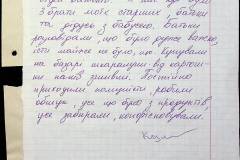 3 брати моїх старших, батьки
та дідусь з бабусею. Батьки
розповідали, що було дуже важко,
їсти майже не було, що купували
на базарі шкаралущу від картоп-
лі навіть зимой. Постійно
приходили комуністи, робили
обшук, усе що було з продуктів
усе забирали, конфісковували.